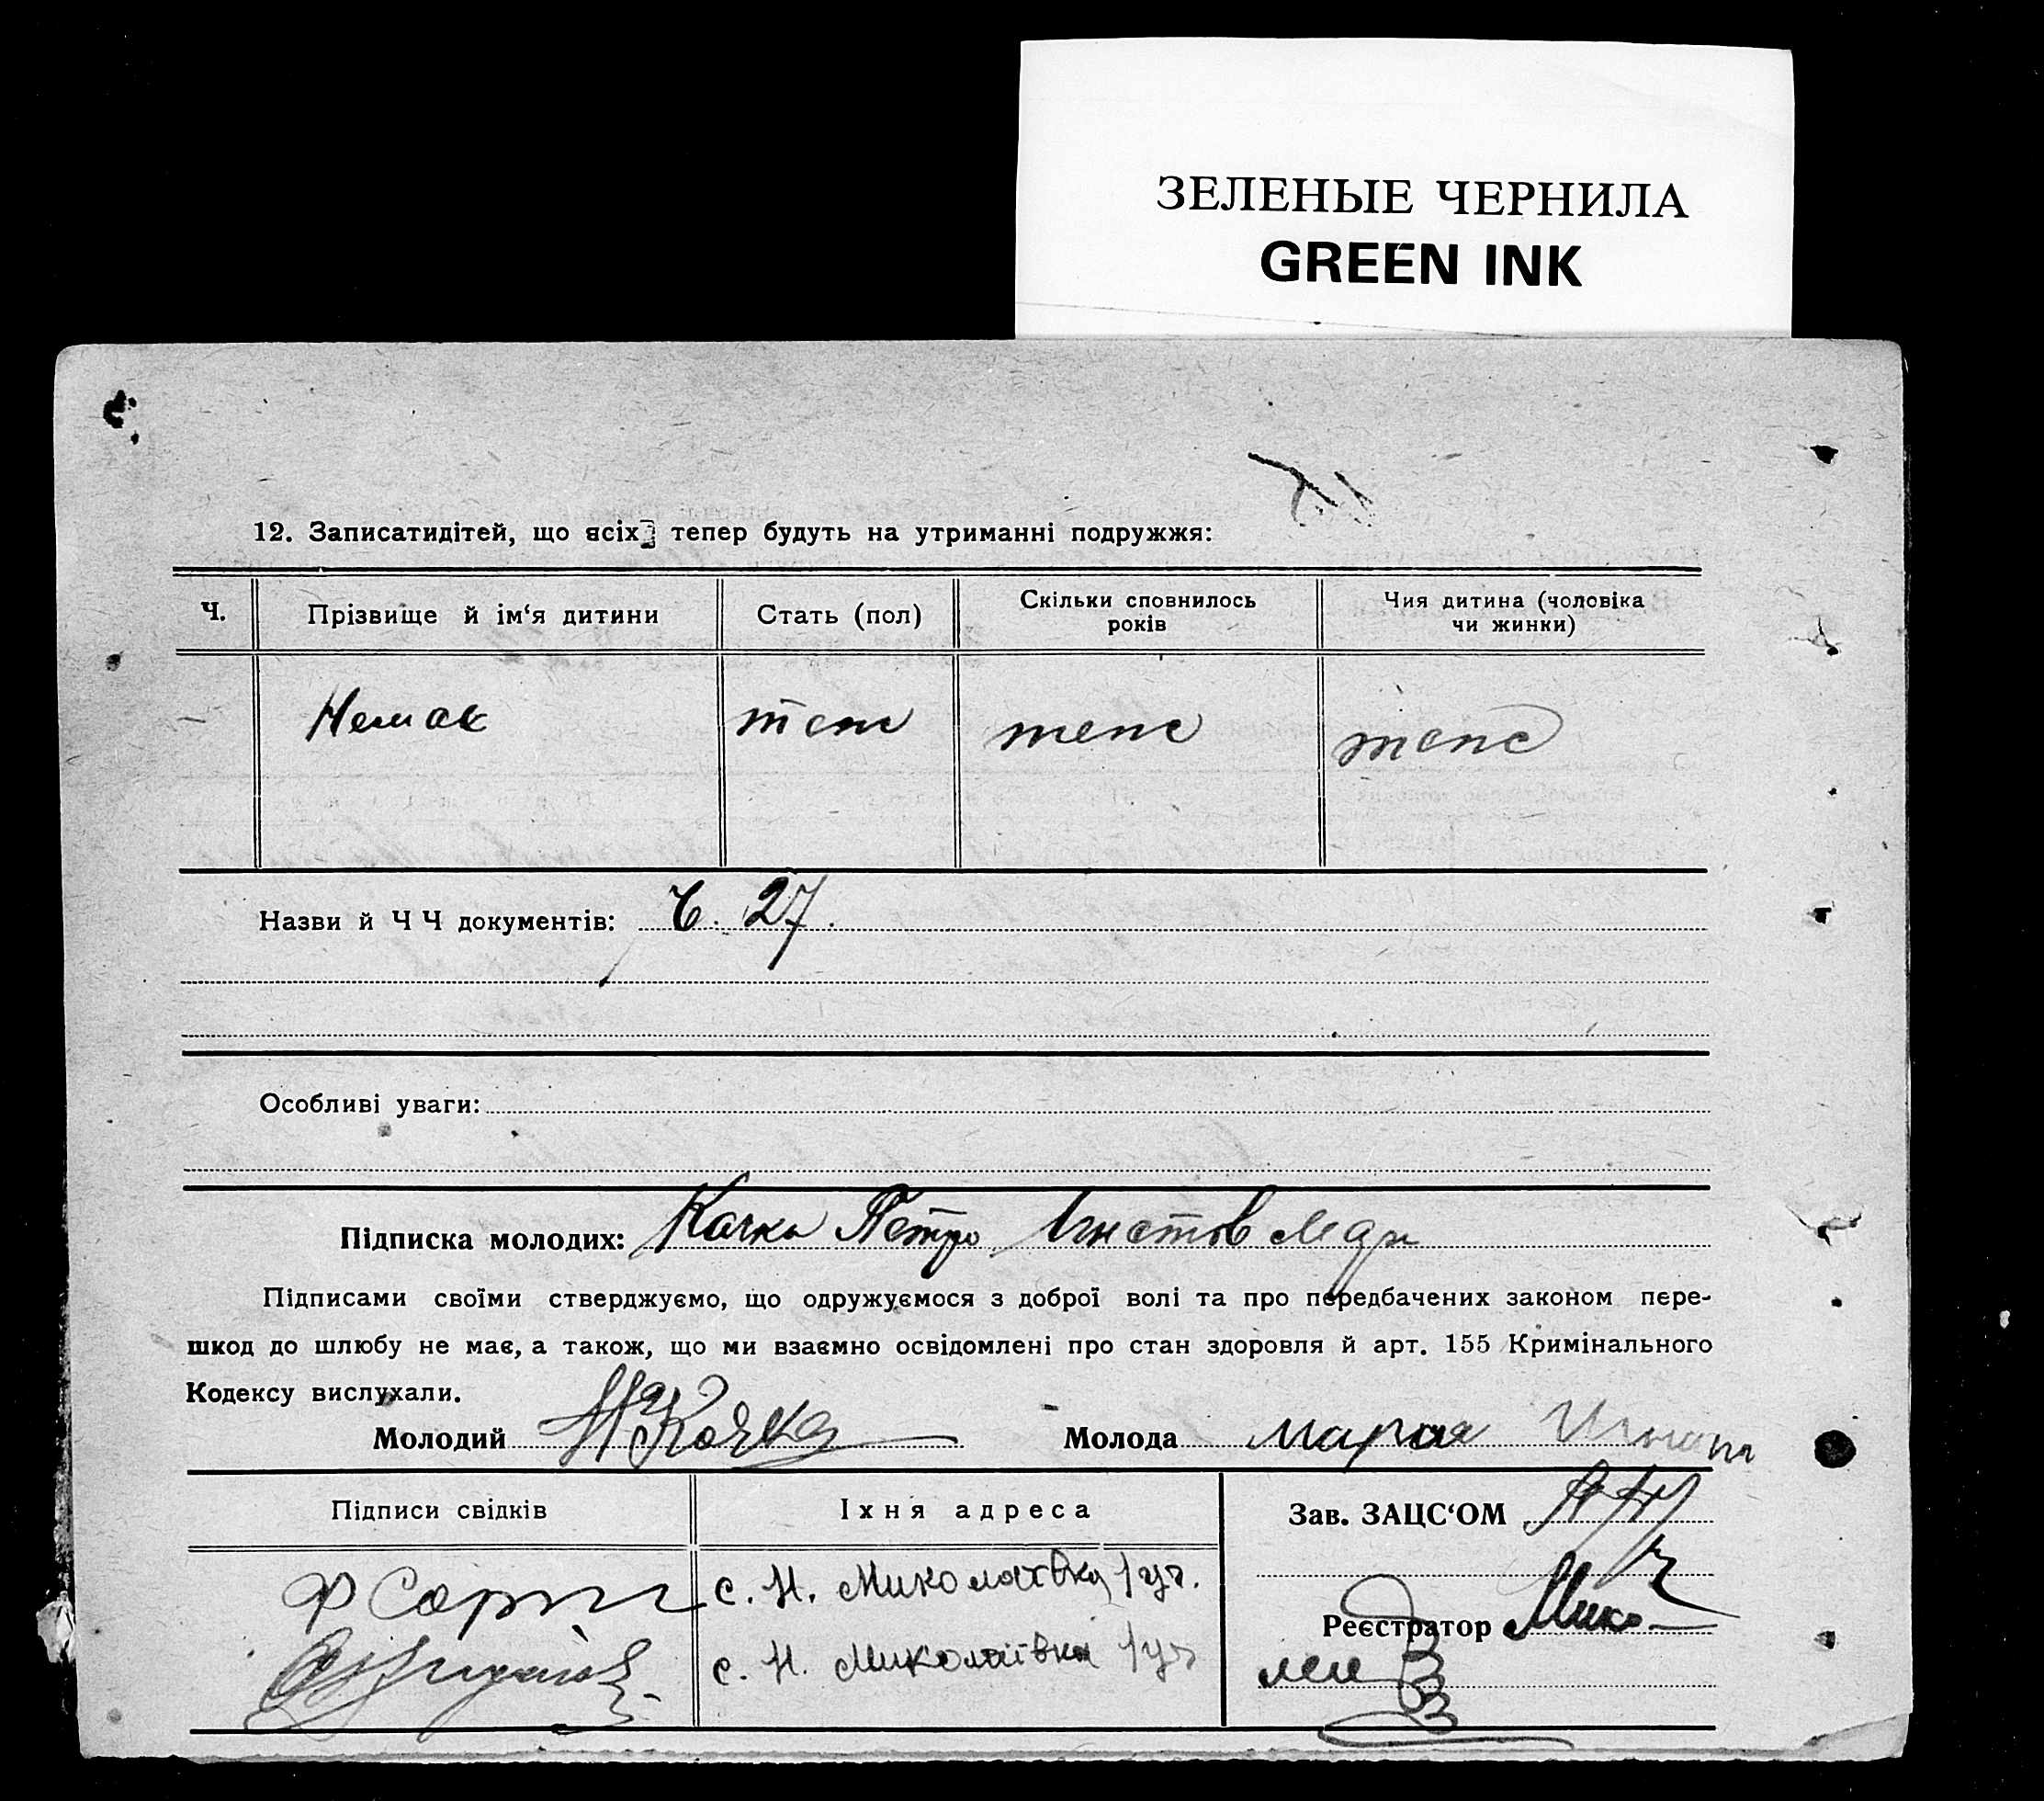 ЗЕЛЕНЫЕ ЧЕРНИЛА
GREEN INK
12. Записатидітей, що всіх тепер будуть на утриманні подружжя:
Ч. Прізвище й ім‘я дитини Стать (пол) Скільки сповнилось років Чия дитина (чоловіка чи жинки)
Немає теж теж теж
Назви й Ч Ч документів: Ч. 27.
Особливі уваги:
Підписка молодих: Качка Петро
Підписами своїми стверджуємо, що одружуємося з доброї волі та про передбачених законом пере-
шкод до шлюбу не має, а також, що ми взаємно освідомлені про стан здоровля й арт. 155 Кримінального
Кодексу вислухали.
Молодий Качка Молода Мария
Підписи свідків Іхня адреса Зав. ЗАЦС‘ОМ
с. Н. Миколаївка 1 уч.
Реєстратор
с. Н. Миколаївка 1 уч